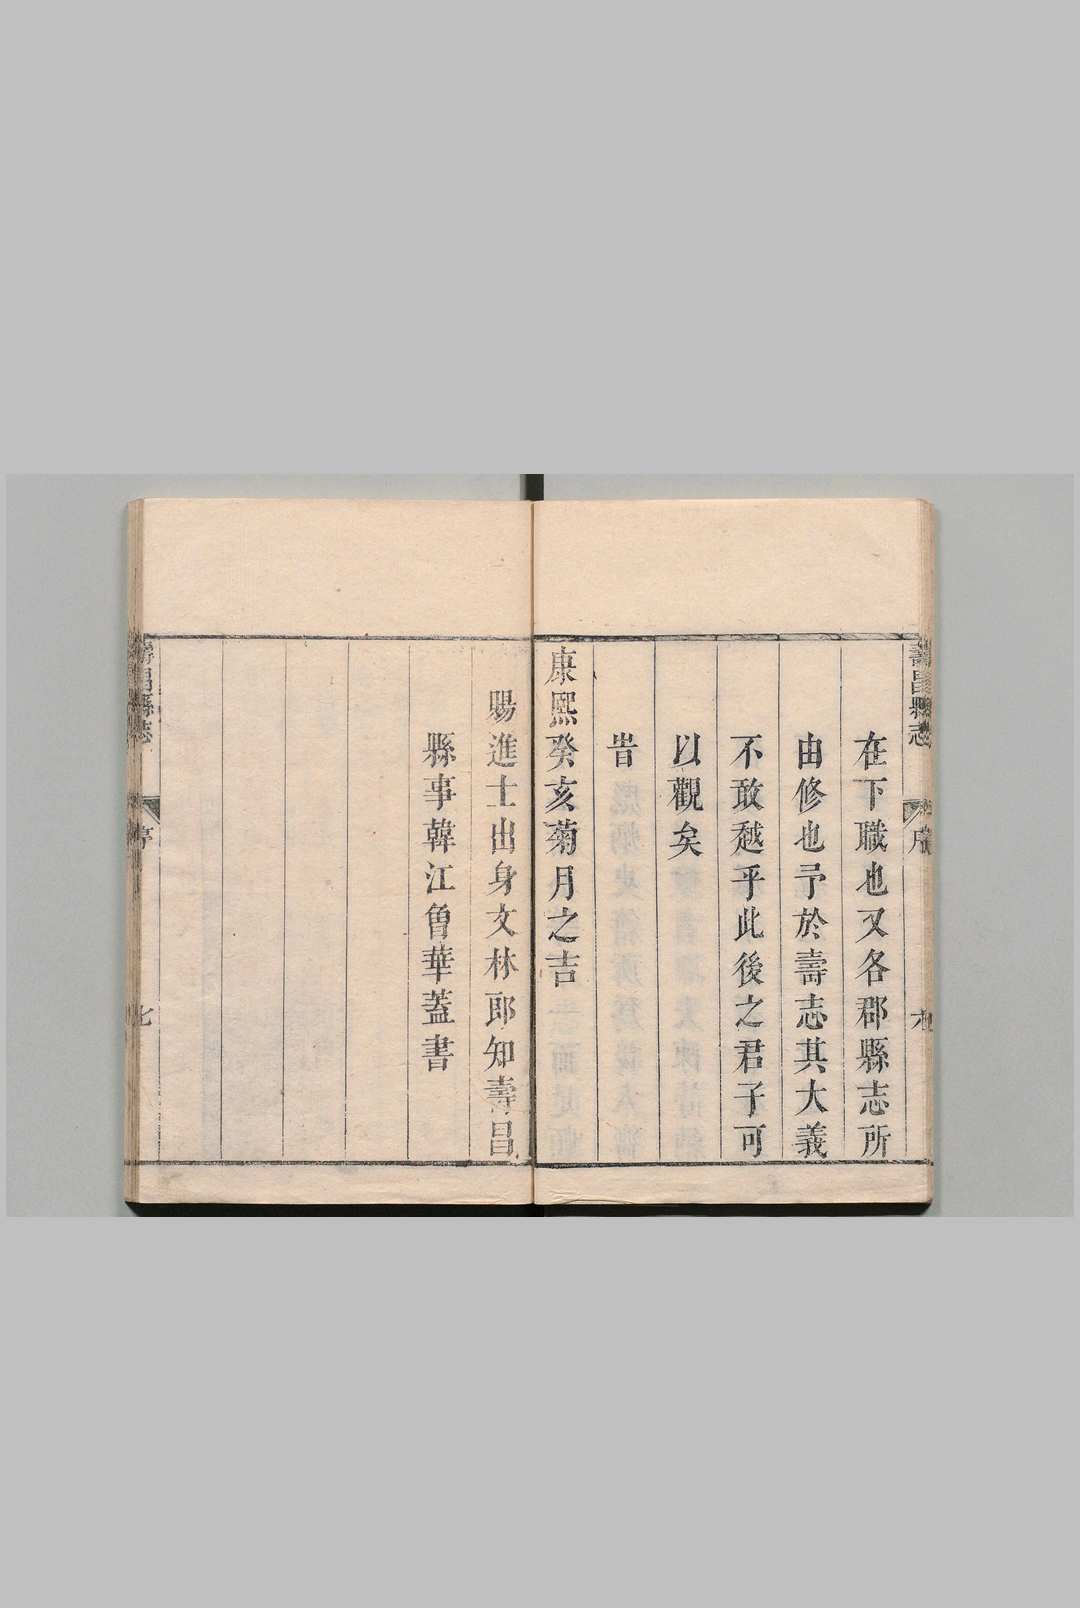 壽昌縣志
序
在下職也又各郡縣志所
由修也予於壽志其大義
不敢越乎此後之君子可
以觀矣
旹
康熙癸亥菊月之吉
賜進士出身文林郎知壽昌
縣事韓江魯華蓋書
壽昌縣志
序
七